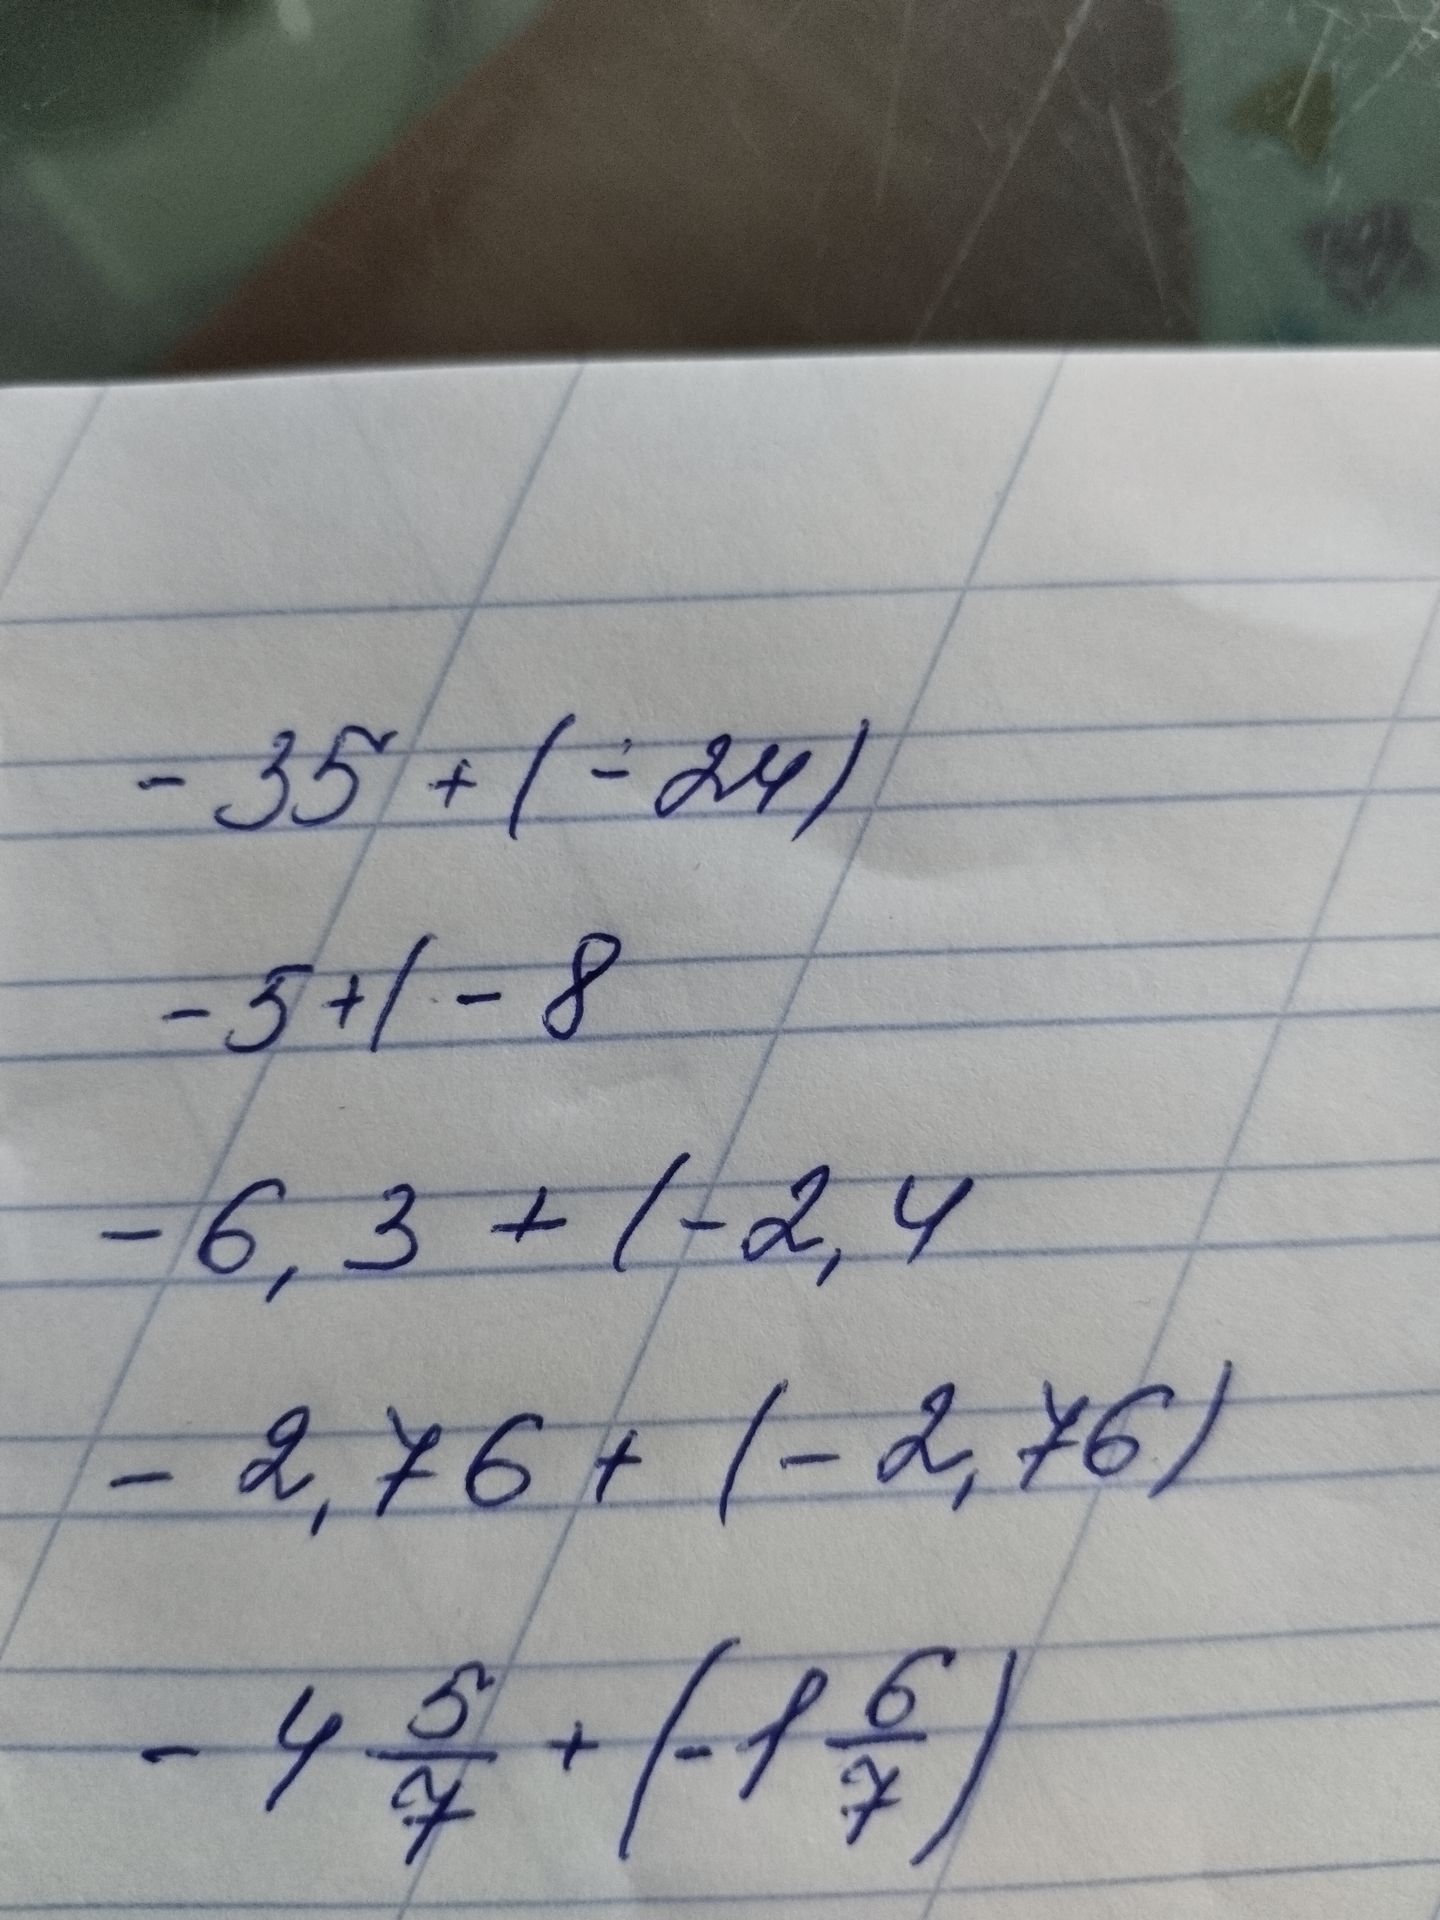 - 35 + (- 24)
- 5 + ( - 8
- 6,3 + (- 2,4
- 2,76 + (- 2,76)
- 4 5/7 + (- 1 6/7)